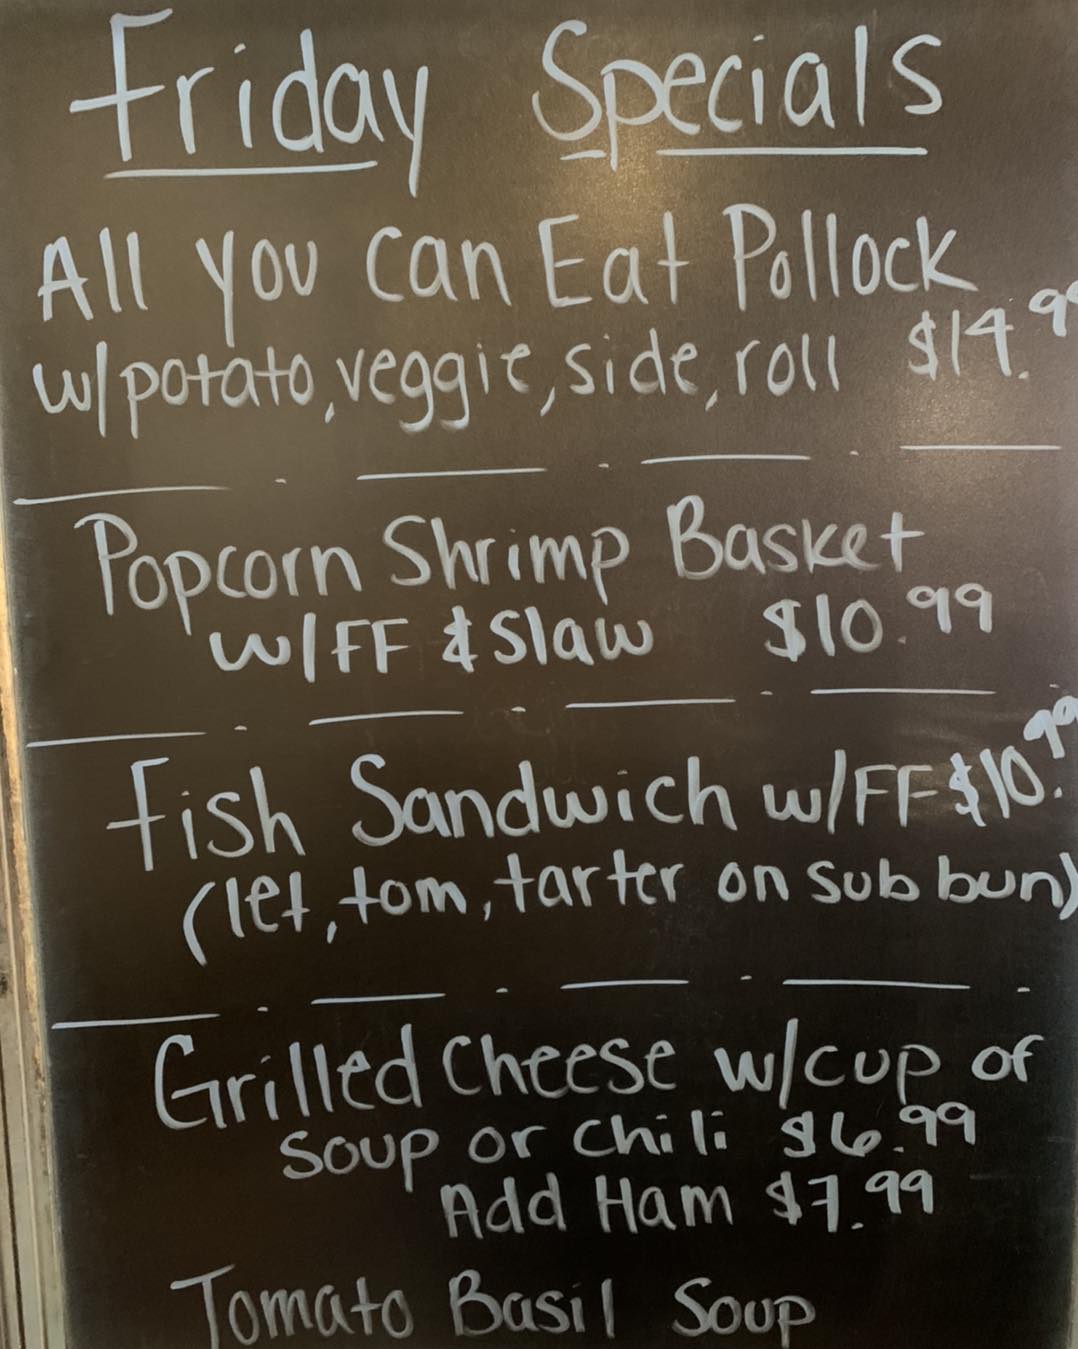 Friday Specials
All you can Eat Pollock
w/potato, veggie, side, roll $14.99
Popcorn Shrimp Basket
w/FF & Slaw $10.99
Fish Sandwich w/FF $10.99
(let, tom, tarter on sub bun)
Grilled Cheese w/cup of
soup or chili $6.99
Add Ham $7.99
Tomato Basil Soup